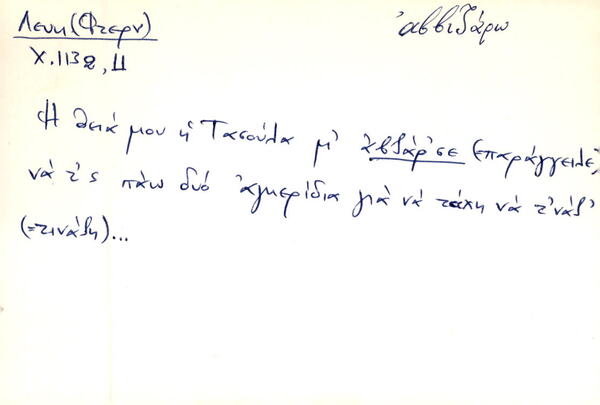 Λευκ (Φτερν)
Χ. 1132, 11
ἀββιζάρω
Ἡ θειά μου ἡ Τασούλα μ' ἀβζάρ'σε (παράγγειλε)
νά τ'ς πάω δυό ἀγκερίδια γιά νά τάχη νά τ'νάζ'
(=τινάζη)...